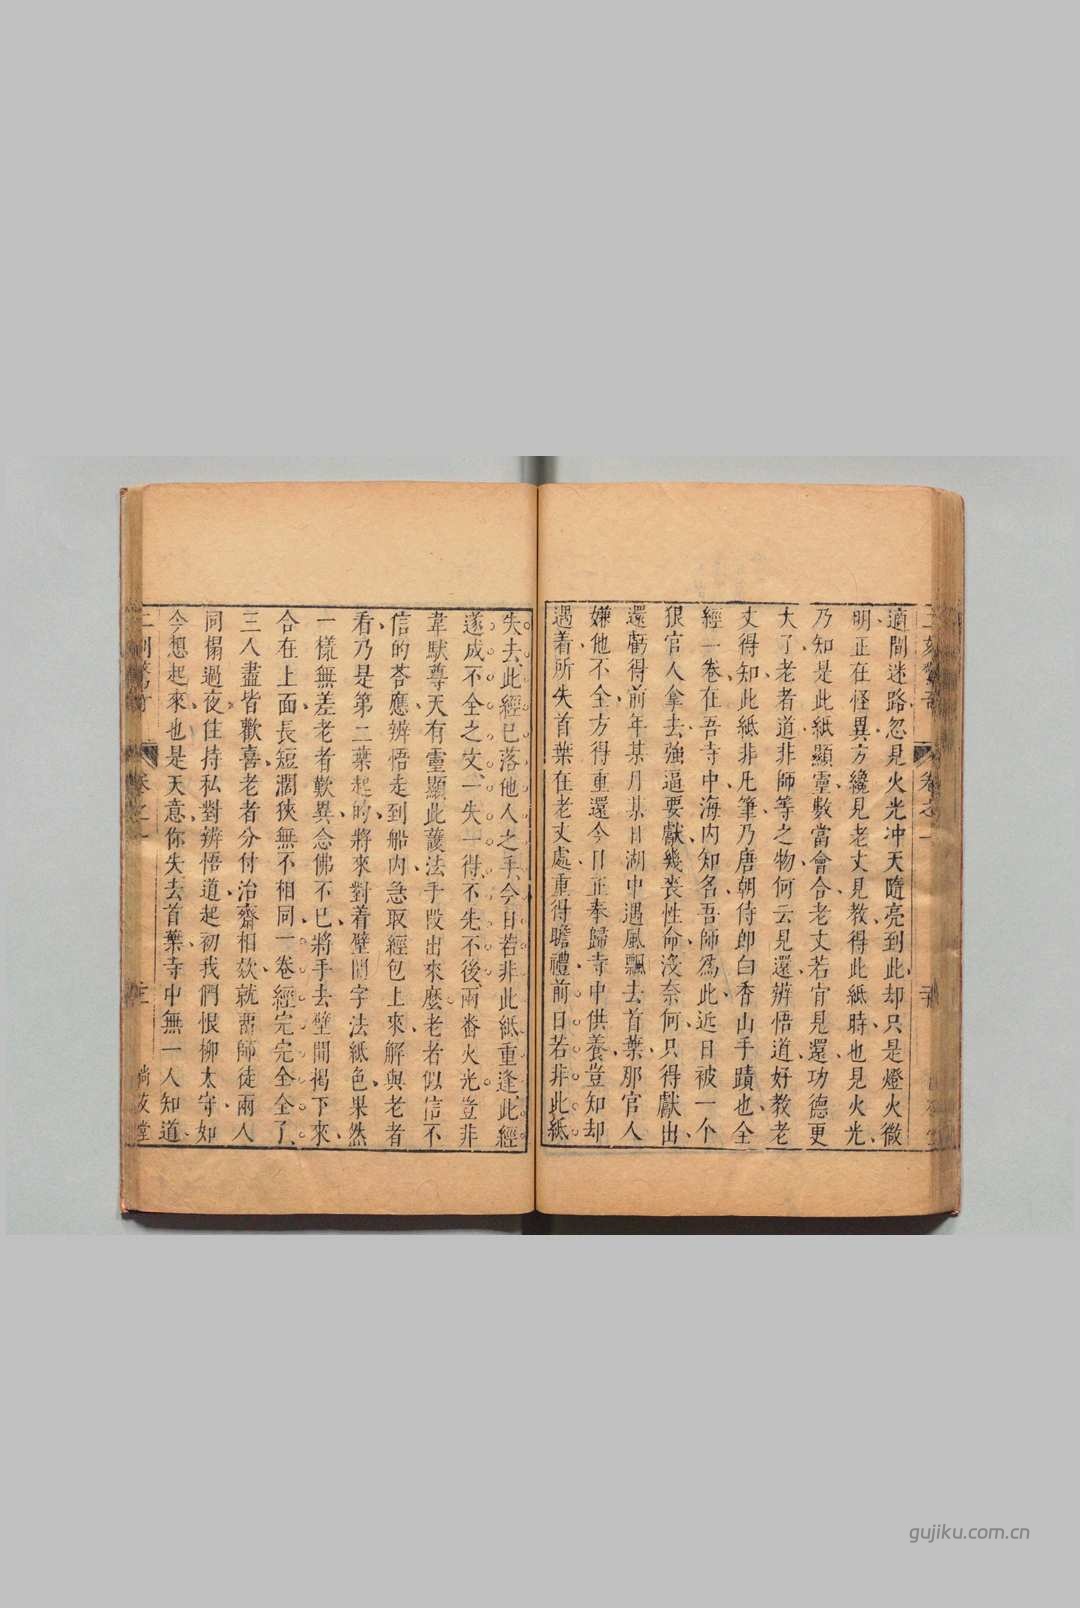 適間迷路忽見火光冲天隨亮到此却只是燈火微
明正在怪異方纔見老丈見教得此紙時也見火光
乃知是此紙顯靈數當會合老丈若肯見還功德更
大了老者道非師等之物何云見還辨悟道好教老
丈得知此紙非凡筆乃唐朝侍郎白香山手蹟也全
經一卷在吾寺中海内知名吾師爲此近日被一个
狠官人拿去強逼要獻幾喪性命没奈何只得獻出
還虧得前年某月某日湖中遇風飄去首葉那官人
嫌他不全方得重還今日正奉歸寺中供養豈知却
遇着所失首葉在老丈處重得瞻禮前日若非此紙
失去此經已落他人之手今日若非此紙重逢此經
遂成不全之文一失一得不先不後兩番火光豈非
韋馱尊天有靈顯此護法手段出來麽老者似信不
信的荅應辨悟走到船内急取經包上來解與老者
看乃是第二葉起的將來對着壁間字法紙色果然
一樣無差老者歎異念佛不已將手去壁間揭下來
合在上面長短濶狹無不相同一卷經完完全全了
三人盡皆歡喜老者分付治齋相欵就畱師徒兩人
同榻過夜住持私對辨悟道起初我們恨柳太守如
今想起來也是天意你失去首葉寺中無一人知道
卷之一
尚友堂
gujiku.com.cn